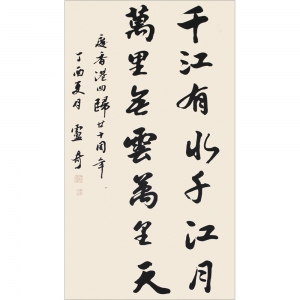 千江有水千江月
萬里無雲萬里天
慶香港回歸廿十周年
丁酉夏月